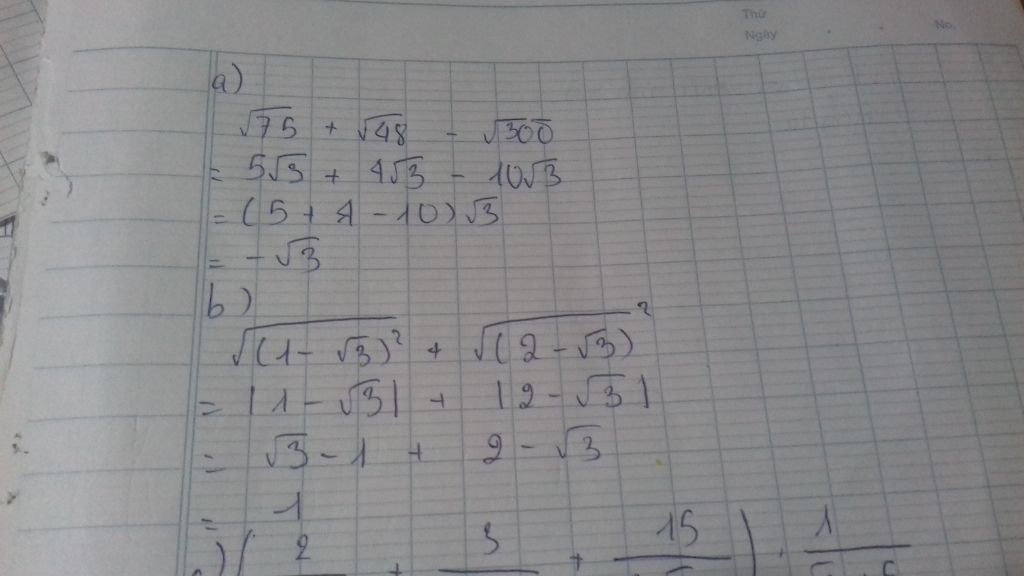 Thứ
Ngày
No.
a)
√75 + √48 - √300
= 5√3 + 4√3 - 10√3
= (5 + 4 - 10)√3
= -√3
b)
√(1 - √3)² + √(2 - √3)²
= |1 - √3| + |2 - √3|
= √3 - 1 + 2 - √3
= 1
2 + 3 + 15 ) . 1